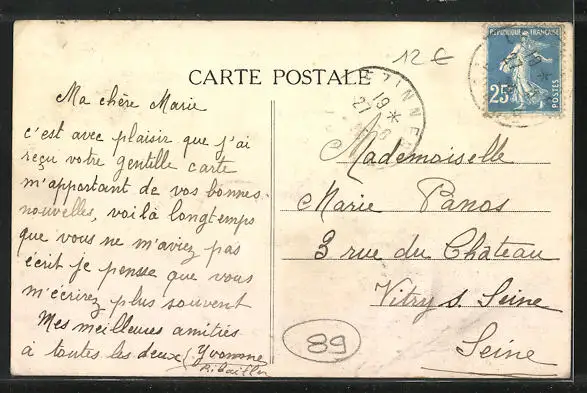 12 €
REPUBLIQUE FRANÇAISE
25
POSTES
CARTE POSTALE
19 *
27
Ma chère Marie
c'est avec plaisir que j'ai
reçu votre gentille carte
m'apportant de vos bonnes
nouvelles, voilà longtemps
que vous ne m'aviez pas
écrit je pensse que vous
m'écrirez plus souvent
Mes meilleures amitiés
à toutes les deux Yvonne
Mademoiselle
Marie Panos
3 rue du Château
Vitry s. Seine
Seine
89